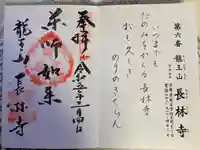 第六番 龍王山
長林寺
いつまでも
たのみをかくる長林寺
松も久しき
のりのきくらん
奉拝 令和五年二月四日
薬師如来
龍王山 長林寺